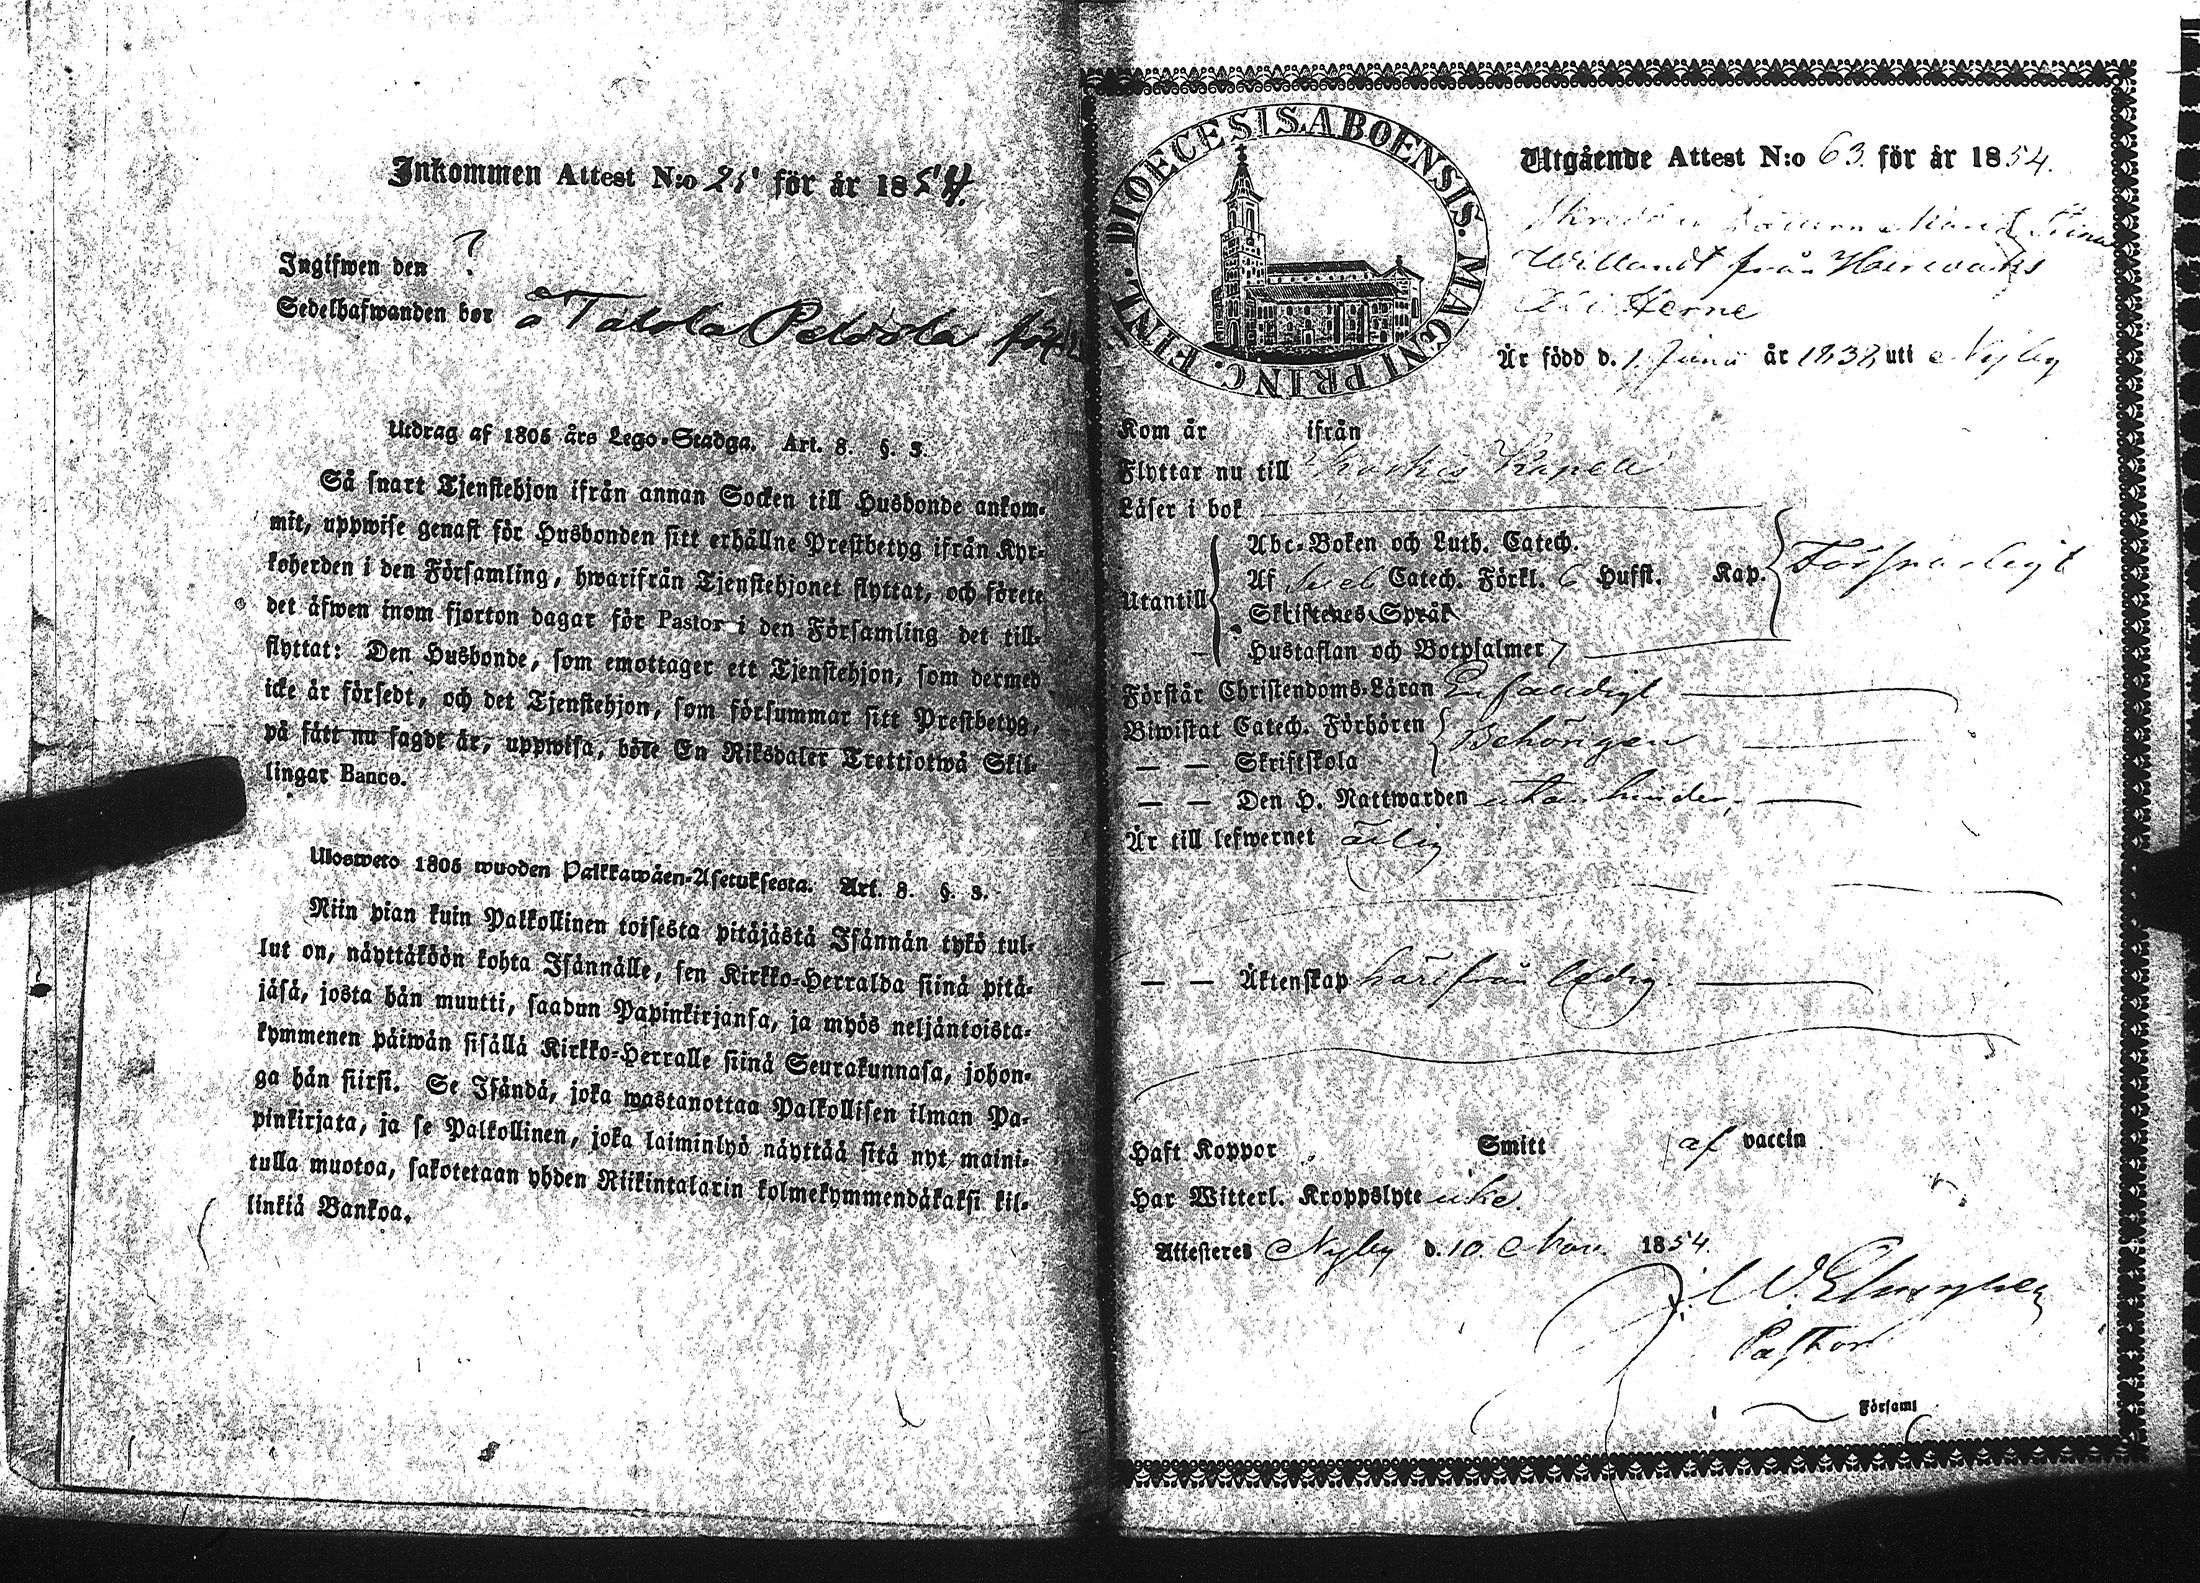 Inkommen Attest N:o 25 för år 1854.
Ingifwen den ?
Sedelhafwanden bor å Talola Peltola
Utdrag af 1805 års Lego-Stadga. Art. 8. §. 3.
Så snart Tjenstehjon ifrån annan Socken till Husbonde ankom-
mit, uppwise genast för Husbonden sitt erhållne Prestbetyg ifrån Kyr-
koherden i den Församling, hwarifrån Tjenstehjonet flyttat, och förete
det äfwen inom fjorton dagar för Pastor i den Församling det till-
flyttat: Den Husbonde, som emottager ett Tjenstehjon, som dermed
icke är försedt, och det Tjenstehjon, som försummar sitt Prestbetyg,
på sätt nu sagdt är, uppwisa, böte En Riksdaler Trettiotwå Skil-
lingar Banco.
Ulosweto 1805 wuoden Palkkawäen-Asetuksesta. Art. 8. §. 3.
Niin pian kuin Palkollinen toisesta pitäjästä Isännän tykö tul-
lut on, näyttäköön kohta Isännälle, sen Kirkko-Herralda siinä pitä-
jäsä, josta hän muutti, saadun Papinkirjansa, ja myös neljäntoista-
kymmenen päiwän sisällä Kirkko-Herralle siinä Seurakunnasa, johon-
ga hän siirsi. Se Isändä, joka wastanottaa Palkollisen ilman Pa-
pinkirjata, ja se Palkollinen, joka laiminlyö näyttää sitä nyt maini-
tulla muotoa, sakotetaan yhden Riikintalarin kolmekymmendäkaksi kil-
linkiä Bankoa.
DIOECESIS ABOENSIS. MAGNI PRINC. FINL.
Utgående Attest N:o 63 för år 1854.
Willandt från Herwans
i Kerne
Är född d. 1 Juni år 1838 uti Nyby
Kom år ifrån
Flyttar nu till Koskis Kapell
Läser i bok
Utantill
Abc-Boken och Luth. Catech.
Af Catech. Förkl. 6 Hufst. Kap. Försvarligt
Skriftenes Språk
Hustaflan och Botpsalmer
Förstår Christendoms-Läran Enfaldigt
Biwistat Catech. Förhören
Behörigen
— — Skriftskola
— — Den H. Nattwarden utan hinder
Är till lefwernet ärlig
— — Äktenskap härifrån ledig.
Haft Koppor Smitt af vaccin
Har Witterl. Kroppslyte icke.
Attesteres Nyby d. 10 Nov. 1854.
Pastor
Församl